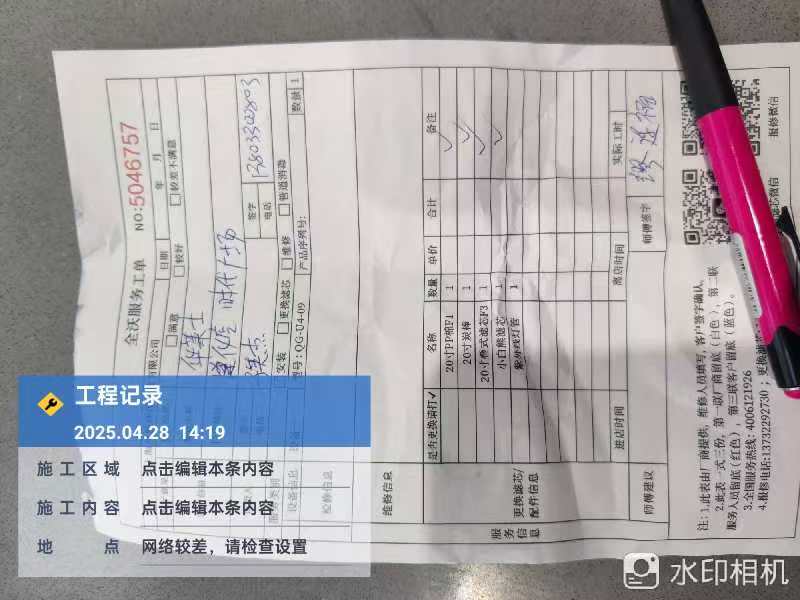 全沃服务工单
NO:5046757
有限公司
日期
年 月 日
满意
较好
较差不满意
华莱士
时代广场
签字
电话
13803302803
安装
更换滤芯
维修
管道消毒
型号:QG-U4-09
产品序列号:
数量 1
检修信息
维修信息
服务信息
更换滤芯/配件信息
是否更换请打✓
名称
数量
单价
合计
备注
20寸PP棉F1 1
20寸炭棒 1
20寸叠式滤芯F3 1
小白熊滤芯 1
紫外线灯管 1
进店时间
离店时间
实际工时
师傅建议
师傅签字
注:1.此表由厂商提供,维修人员填写,客户签字确认.
2.此表一式三份,第一联厂商留底(白色),第二联
服务人员留底(红色),第三联客户留底(蓝色)。
3.全国服务热线:4006121926
4.报修电话:13732292730;更换滤芯
报修微信
工程记录
2025.04.28 14:19
施工区域 点击编辑本条内容
施工内容 点击编辑本条内容
地点 网络较差，请检查设置
水印相机